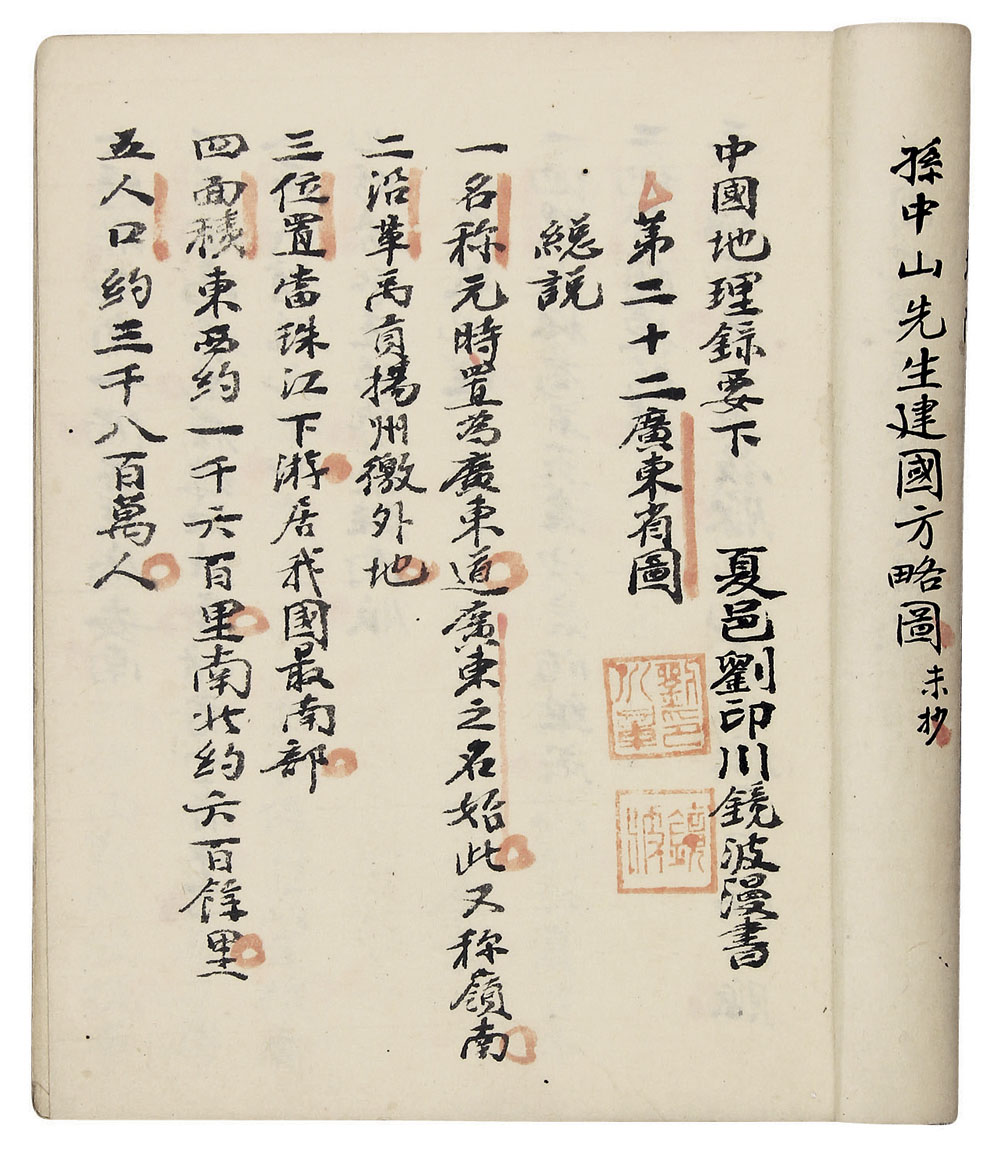 孫中山先生建國方略圖 未抄
中國地理錄要下 夏邑劉印川鏡波漫書
第二十二廣東省圖
総説
一名称元時置為廣東道廣東之名始此又称嶺南
二沿革禹貢揚州徼外地
三位置當珠江下游居我國最南部
四面積東西約一千六百里南北約六百餘里
五人口約三千八百萬人